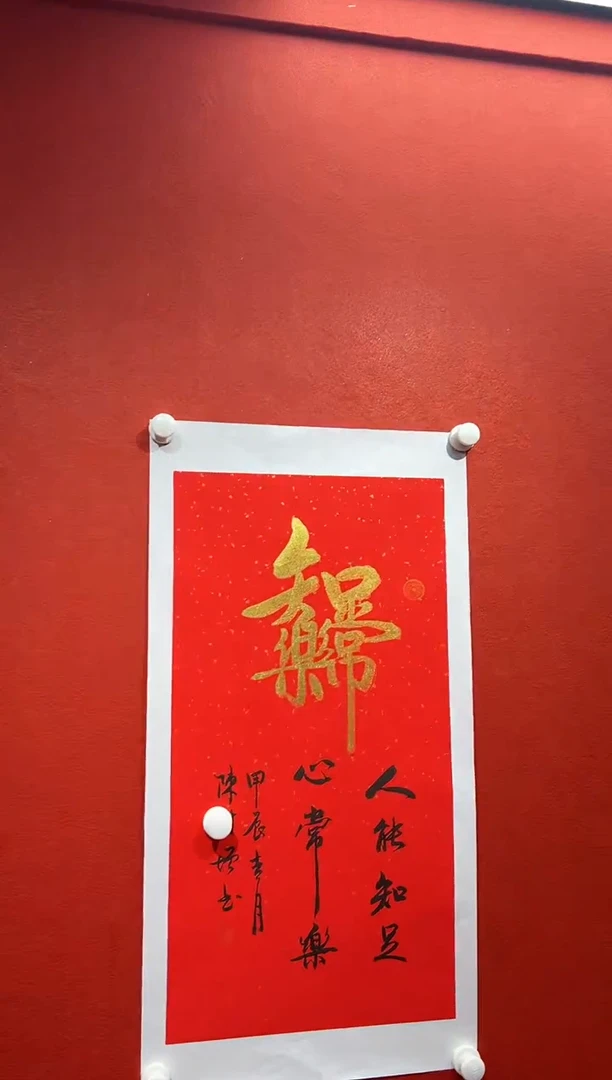 知足常樂
人能知足
心常樂
甲辰吉月
陳 增书